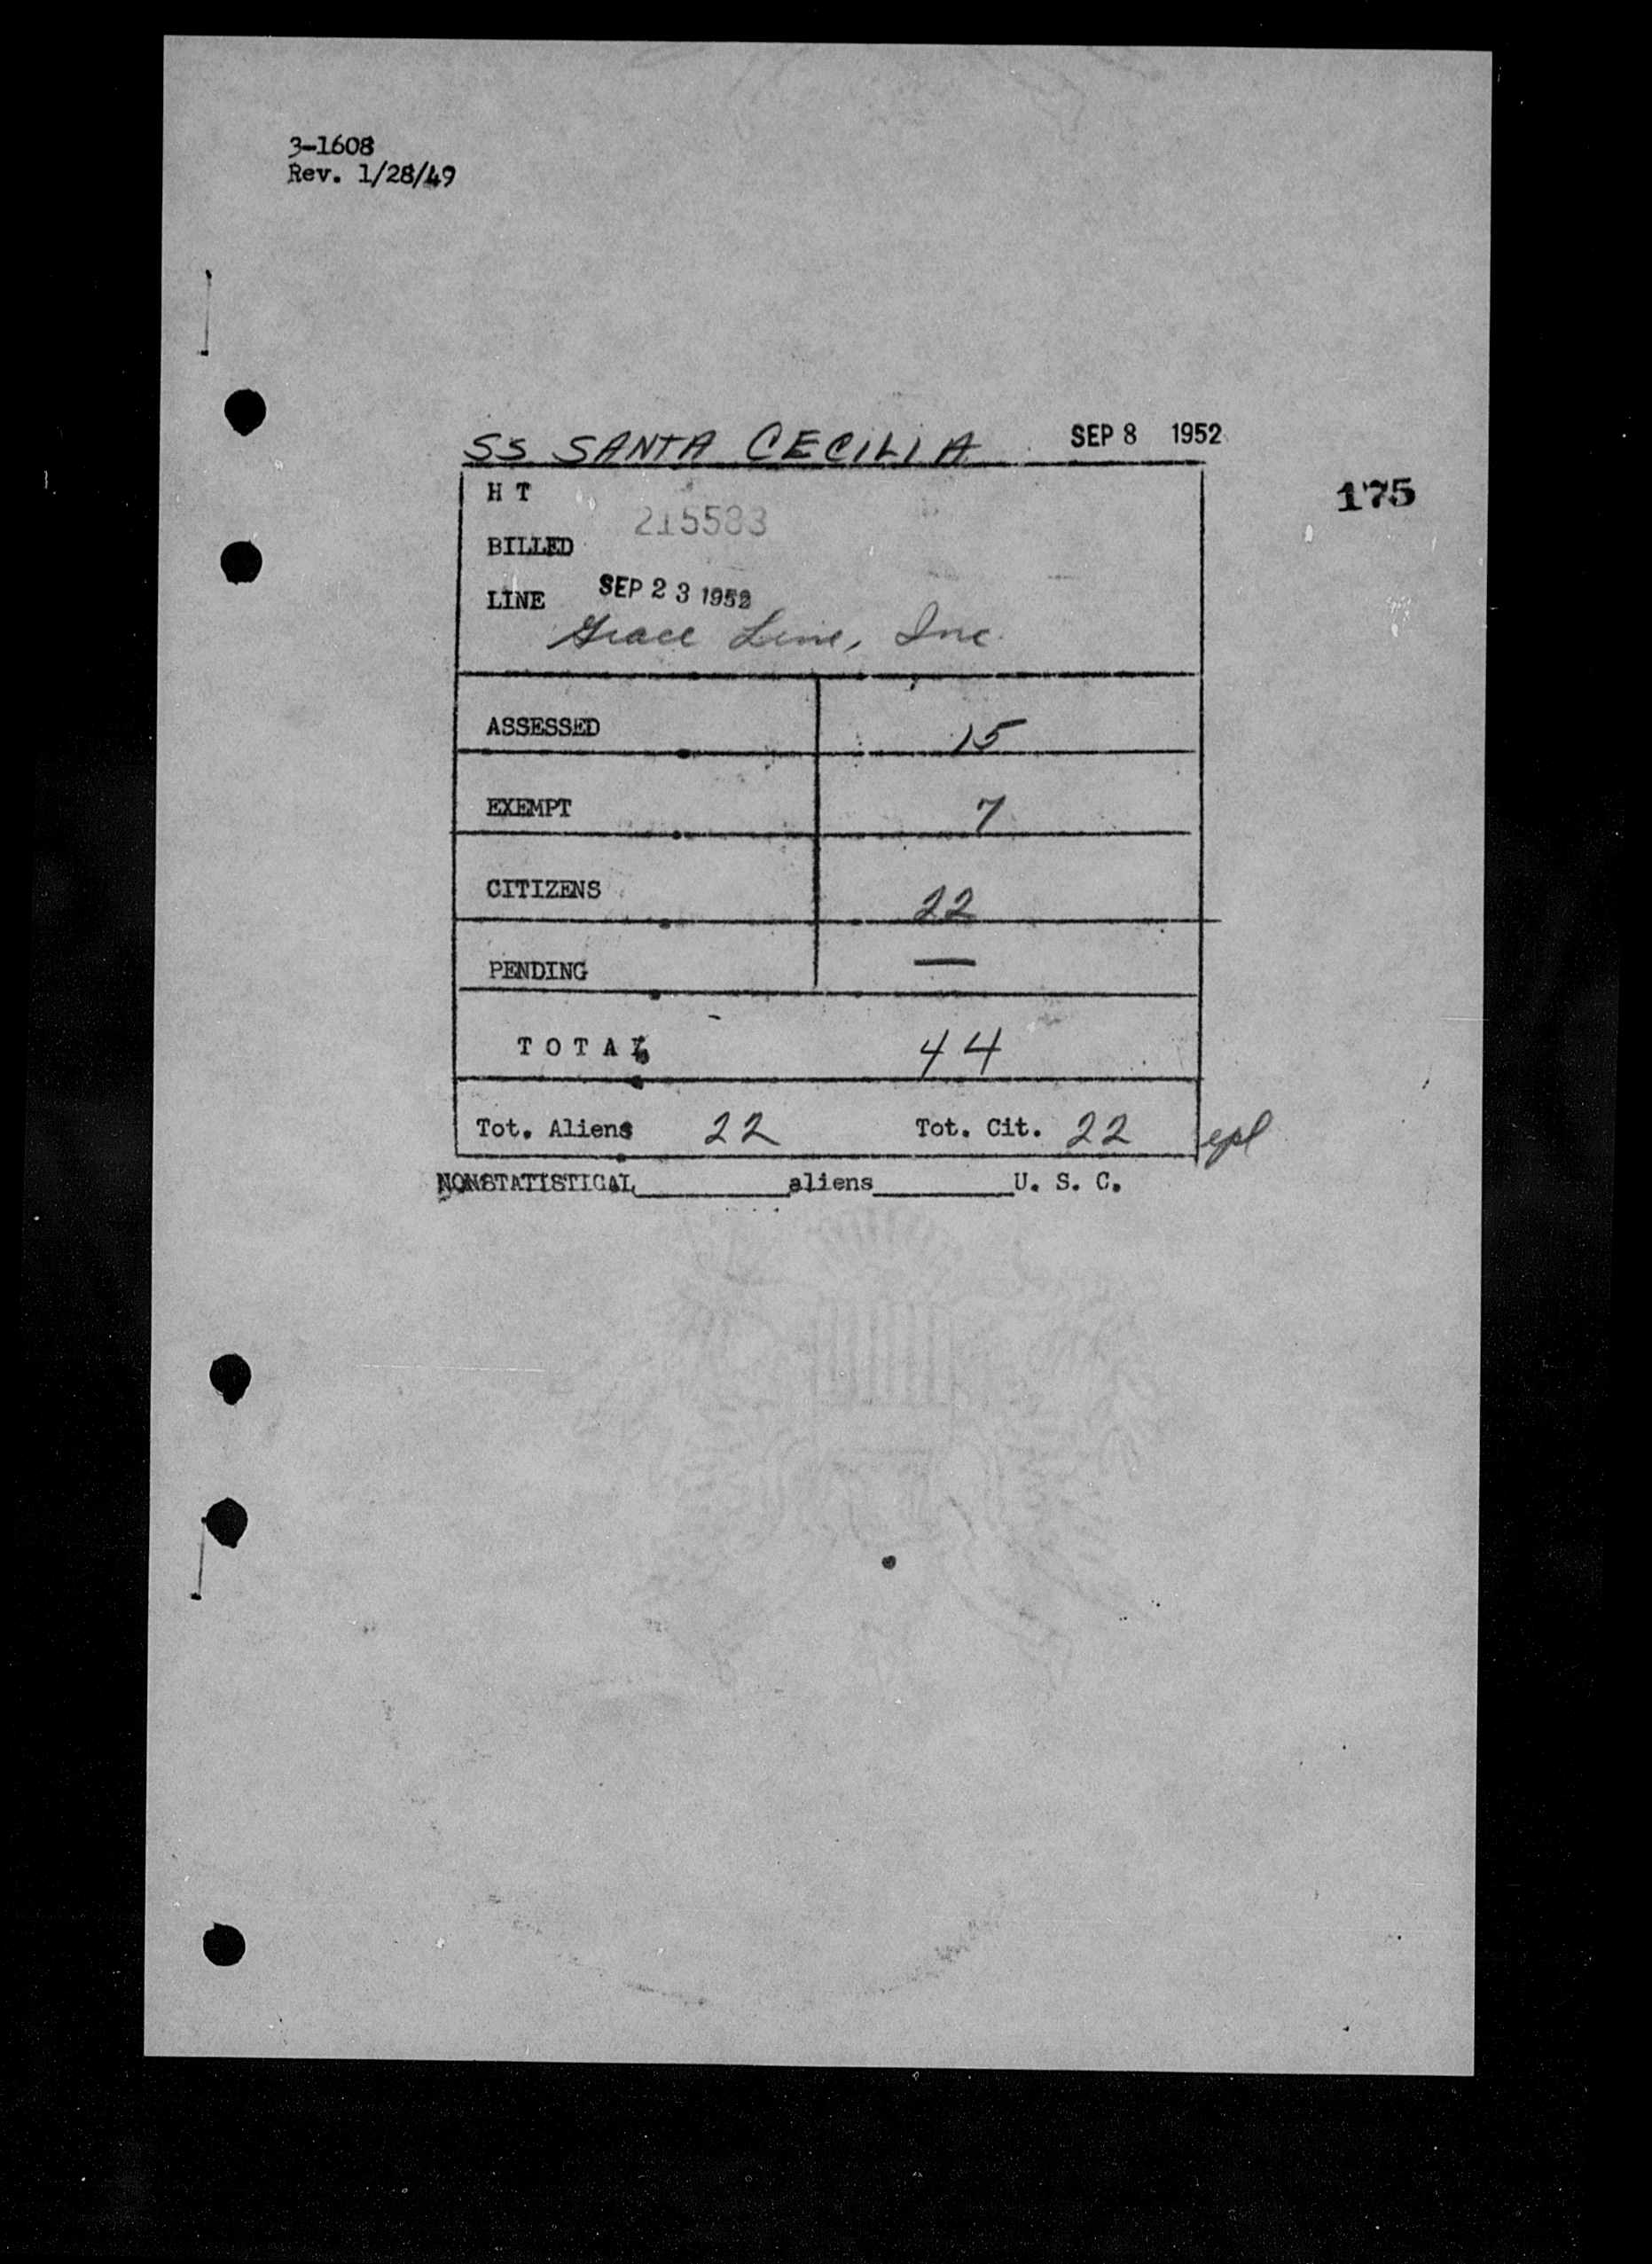 3-1608
Rev. 1/28/49
SS SANTA CECILIA SEP 8 1952
175
H T
215583
BILLED
LINE SEP 23 1952
Grace Line, Inc.
ASSESSED 15
EXEMPT 7
CITIZENS 22
PENDING —
TOTAL 44
Tot. Aliens 22 Tot. Cit. 22 epl
NONSTATISTICAL________aliens________U. S. C.